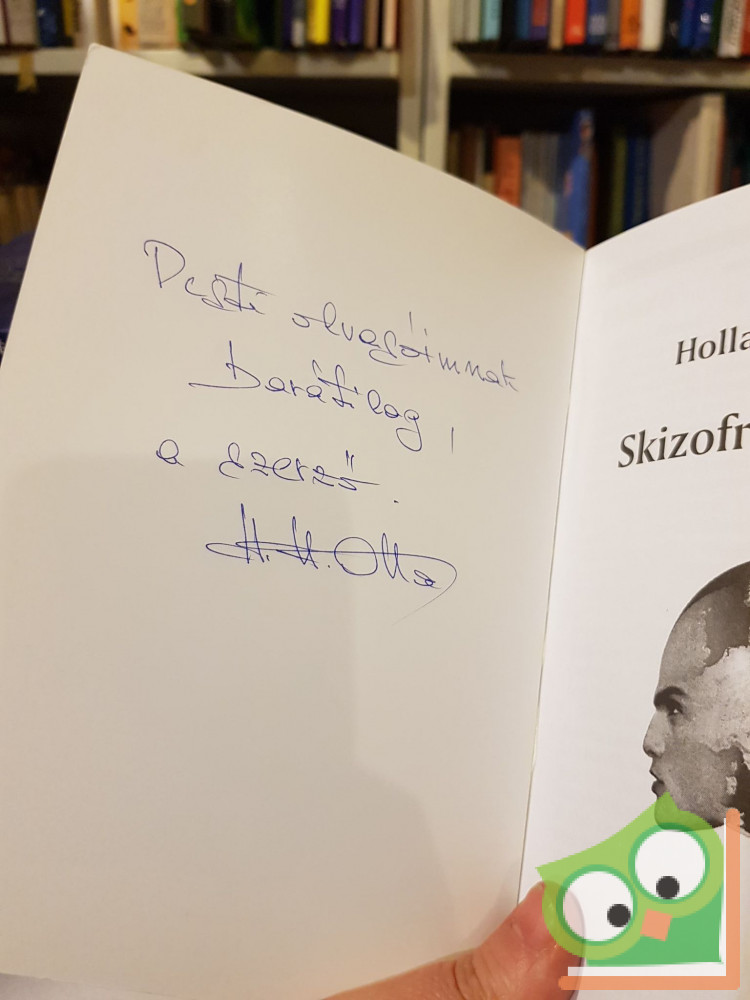 Pesti olvasóimnak
barátilag,
a szerző.
H. H. Ottó
Holla
Skizofr